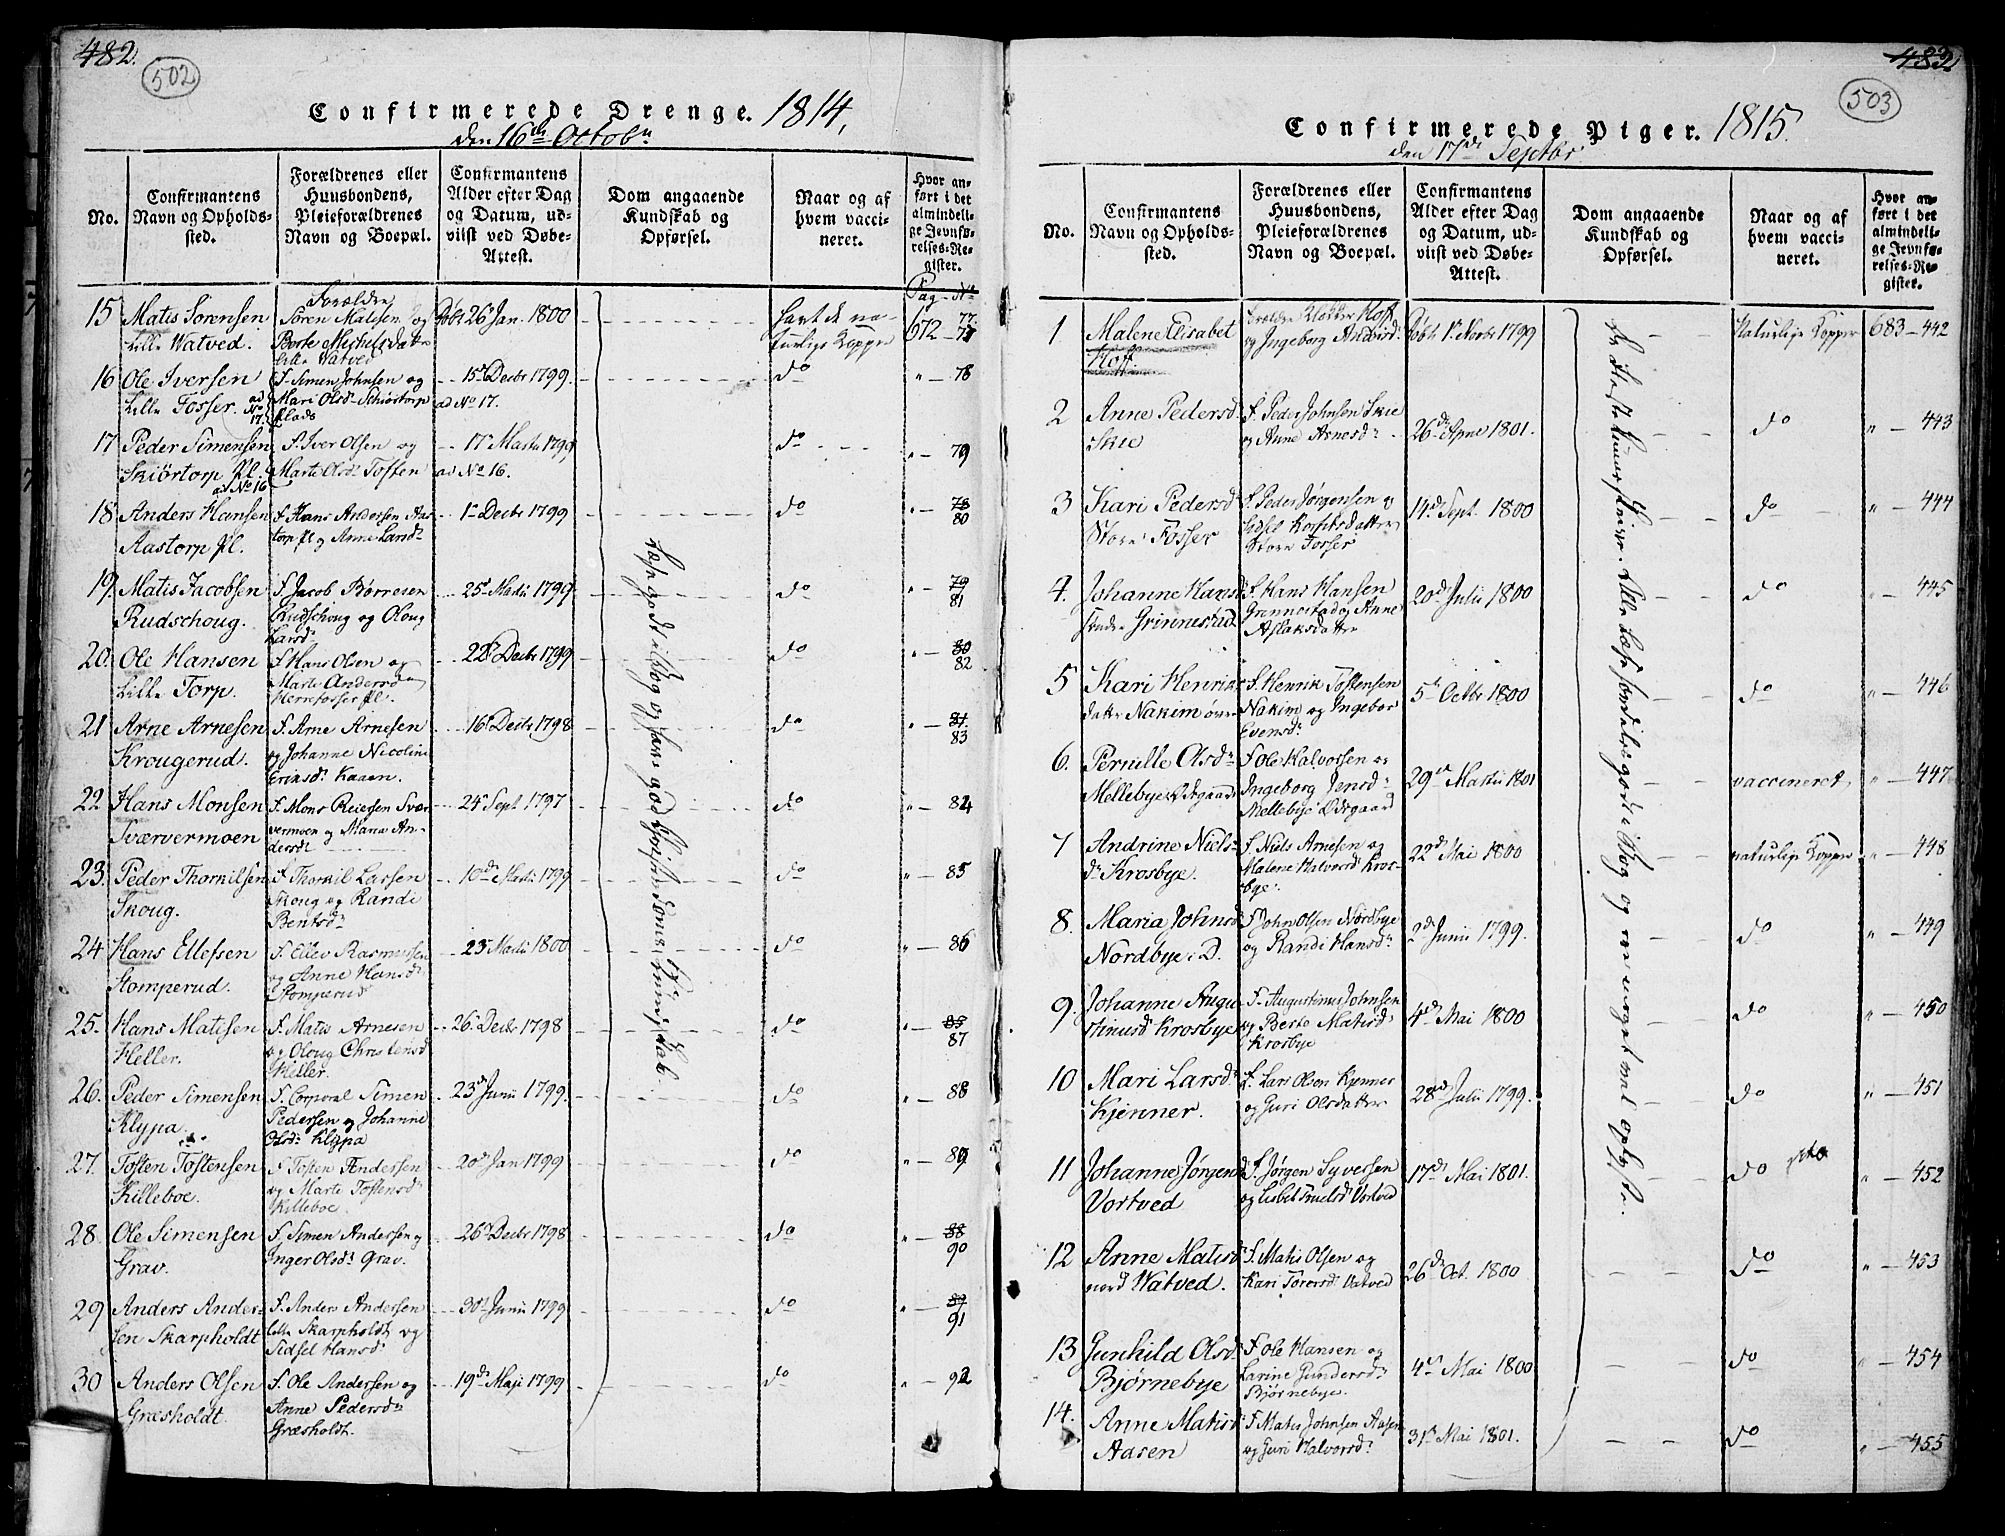 482.
502
Confirmerede Drenge. 1814,
den 16de Octobr
No.
Confirmantens Navn og Opholdssted.
Forældrenes eller Huusbondens, Pleieforældrenes Navn og Boepæl.
Confirmantens Alder efter Dag og Datum, udviist ved Døbe-Attest.
Dom angaaende Kundskab og Opførsel.
Naar og af hvem vaccineret.
Hvor anført i det almindelige Jevnførelses-Register.
Pag. No
15 Matis Sørensen Lille Watved.
Forældre Søren Matisen og Berte Michelsdatter Lille Watved
døbt 26 Jan. 1800
havt de naturlige Kopper
672 — 77
16 Ole Iversen Lille Fosser. ad No 17.
F. Simen Johnsen og Mari Olsd. Schiørtorp plads
15 Decbr 1799. ad No 17.
do
" — 78
17 Peder Simensen Skiørtorp Pl. ad No 16
F. Iver Olsen og Marte Olsd. Fosten
17 Martii 1799 ad No 16.
do
" — 79
18 Anders Hansen Aastorp pl.
F. Hans Andersen Aastorp pl og Anne Larsd
1 Decbr 1799
do
" — 78 80
19. Matis Jacobsen Rudschoug.
F. Jacob Børresen Rudschoug og Oloug Larsd
25 Martii 1799
do
" — 79 81
20. Ole Hansen Lille Torp.
F. Hans Olsen og Marte Andersd Herrefosser pl.
22 Decbr 1799
do
" — 80 82
21 Arne Arnesen Krougerud.
F. Arne Arnesen og Johanne Nicoline Eriksd. Kaaen.
16 Decbr 1798
do
" — 81 83
22 Hans Monsen Sværvermoen
F. Mons Reiersen Sværvermoen og Maria Andersdr
24 Sept 1797
do
" — 84
23. Peder Thorkilsen Skoug.
F. Thorkil Larsen Skoug og Randi Bentsd
10de Martii 1799
do
" — 85
24 Hans Ellefsen Stomperud.
F. Ellev Rasmussen og Anne Hansd Stomperud
23 Martii 1800
do
" — 86
25. Hans Matisen Heller.
F. Matis Arnesen og Oloug Christensd Heller.
26 Decbr 1798
do
" — 85 87
26. Peder Simensen Klypa.
F. Corporal Simen Pedersen og Johanne Olsdr Klypa
23de Junii 1799.
do
" — 88
27. Tosten Tostensen Killeboe.
F. Tosten Andersen og Marte Tostensd Killeboe.
20de Jan 1799
do
" — 89
28 Ole Simensen Grav.
F. Simen Andersen og Inger Olsdr Grav.
26 Decbr 1798
do
" — 88 90
29 Anders Andersen Skarpholdt
F. Anders Andersen Lille Skarpholdt og Sidsel Hansd
30 Junii 1799
do
" — 89 91
30 Anders Olsen Græsholdt.
F. Ole Andersen og Anne Pedersdr Græsholdt.
19de Maji 1799
do
" — 92
læse godt i Bog og have god Christendoms Kundskab.
483.
503
Confirmerede Piger. 1815.
den 17de Septbr
No.
Confirmantens Navn og Opholdssted.
Forældrenes eller Huusbondens, Pleieforældrenes Navn og Boepæl.
Confirmantens Alder efter Dag og Datum, udviist ved Døbe-Attest.
Dom angaaende Kundskab og Opførsel.
Naar og af hvem vaccineret.
Hvor anført i det almindelige Jevnførelses-Register.
1 Malene Elisabet Hoff
Forældre Klokker Hoff og Ingeborg
Døbt 1 Novbr 1799
Naturlige Kopper
683 — 442
2 Anne Pedersd Skie
F. Peder Johnsen Skie og Anne Arnesdr
26de 1801.
do
" — 443
3 Kari Pedersd Store Fosser
F. Peder Jørgensen og Sidsel Store Fosser
14de Sept. 1800
do
" — 444
4. Johanne Hans Søndre Grinnestad
F. Hans Hansen Grennestad og Anne Aslaksdatter
20de Julii 1800
do
" — 445
5 Kari Henriksdatter Nakim
F. Henrik Tostensen Nakim og Ingebor Evensd
5te Octbr 1800
do
" — 446
6. Pernille Olsdr Mellebye Ødegaard
F. Ole Halvorsen og Ingeborg Jensdr Mellebye Ødegaard
29de Martii 1801
vaccineret
" — 447
7 Andrine Nielsdr Krosbye.
F. Niels Arnesen og Malene Halvorsd Krosbye.
22de Mai 1800
naturlige Kopper
" — 448
8. Maria Johnsd Nordbye i D.
F. John Olsen Nordbye og Randi Hansdr
2de Junii 1799.
do
" — 449
9. Johanne Augustinusd Krosbye
F. Augustinus Johnsen og Berte Matisd Krosbye
4de Mai 1800
do
" — 450
10 Mari Larsdr Kjenner.
F. Lars Olsen Kjenner og Guri Olsdatter
28de Julii 1799.
do
" — 451
11 Johanne Jørgens Vortved
F. Jørgen Syversen og Lisbet Vortved
17de Mai 1801.
do
" — 452
12 Anne Matisd nord Watved.
F. Matis Olsen og Kari Torersd Vatved
26de Oct. 1800
do
" — 453
13 Gunhild Olsd. Bjørnebye
F. Ole Hansen og Larine Gundersd Bjørnebye.
4de Mai 1800
do
" — 454
14. Anne Matisd Aasen
F. Matis Johnsen Aasen og Guri Halvorsdr
31 Mai 1801.
do
" — 455